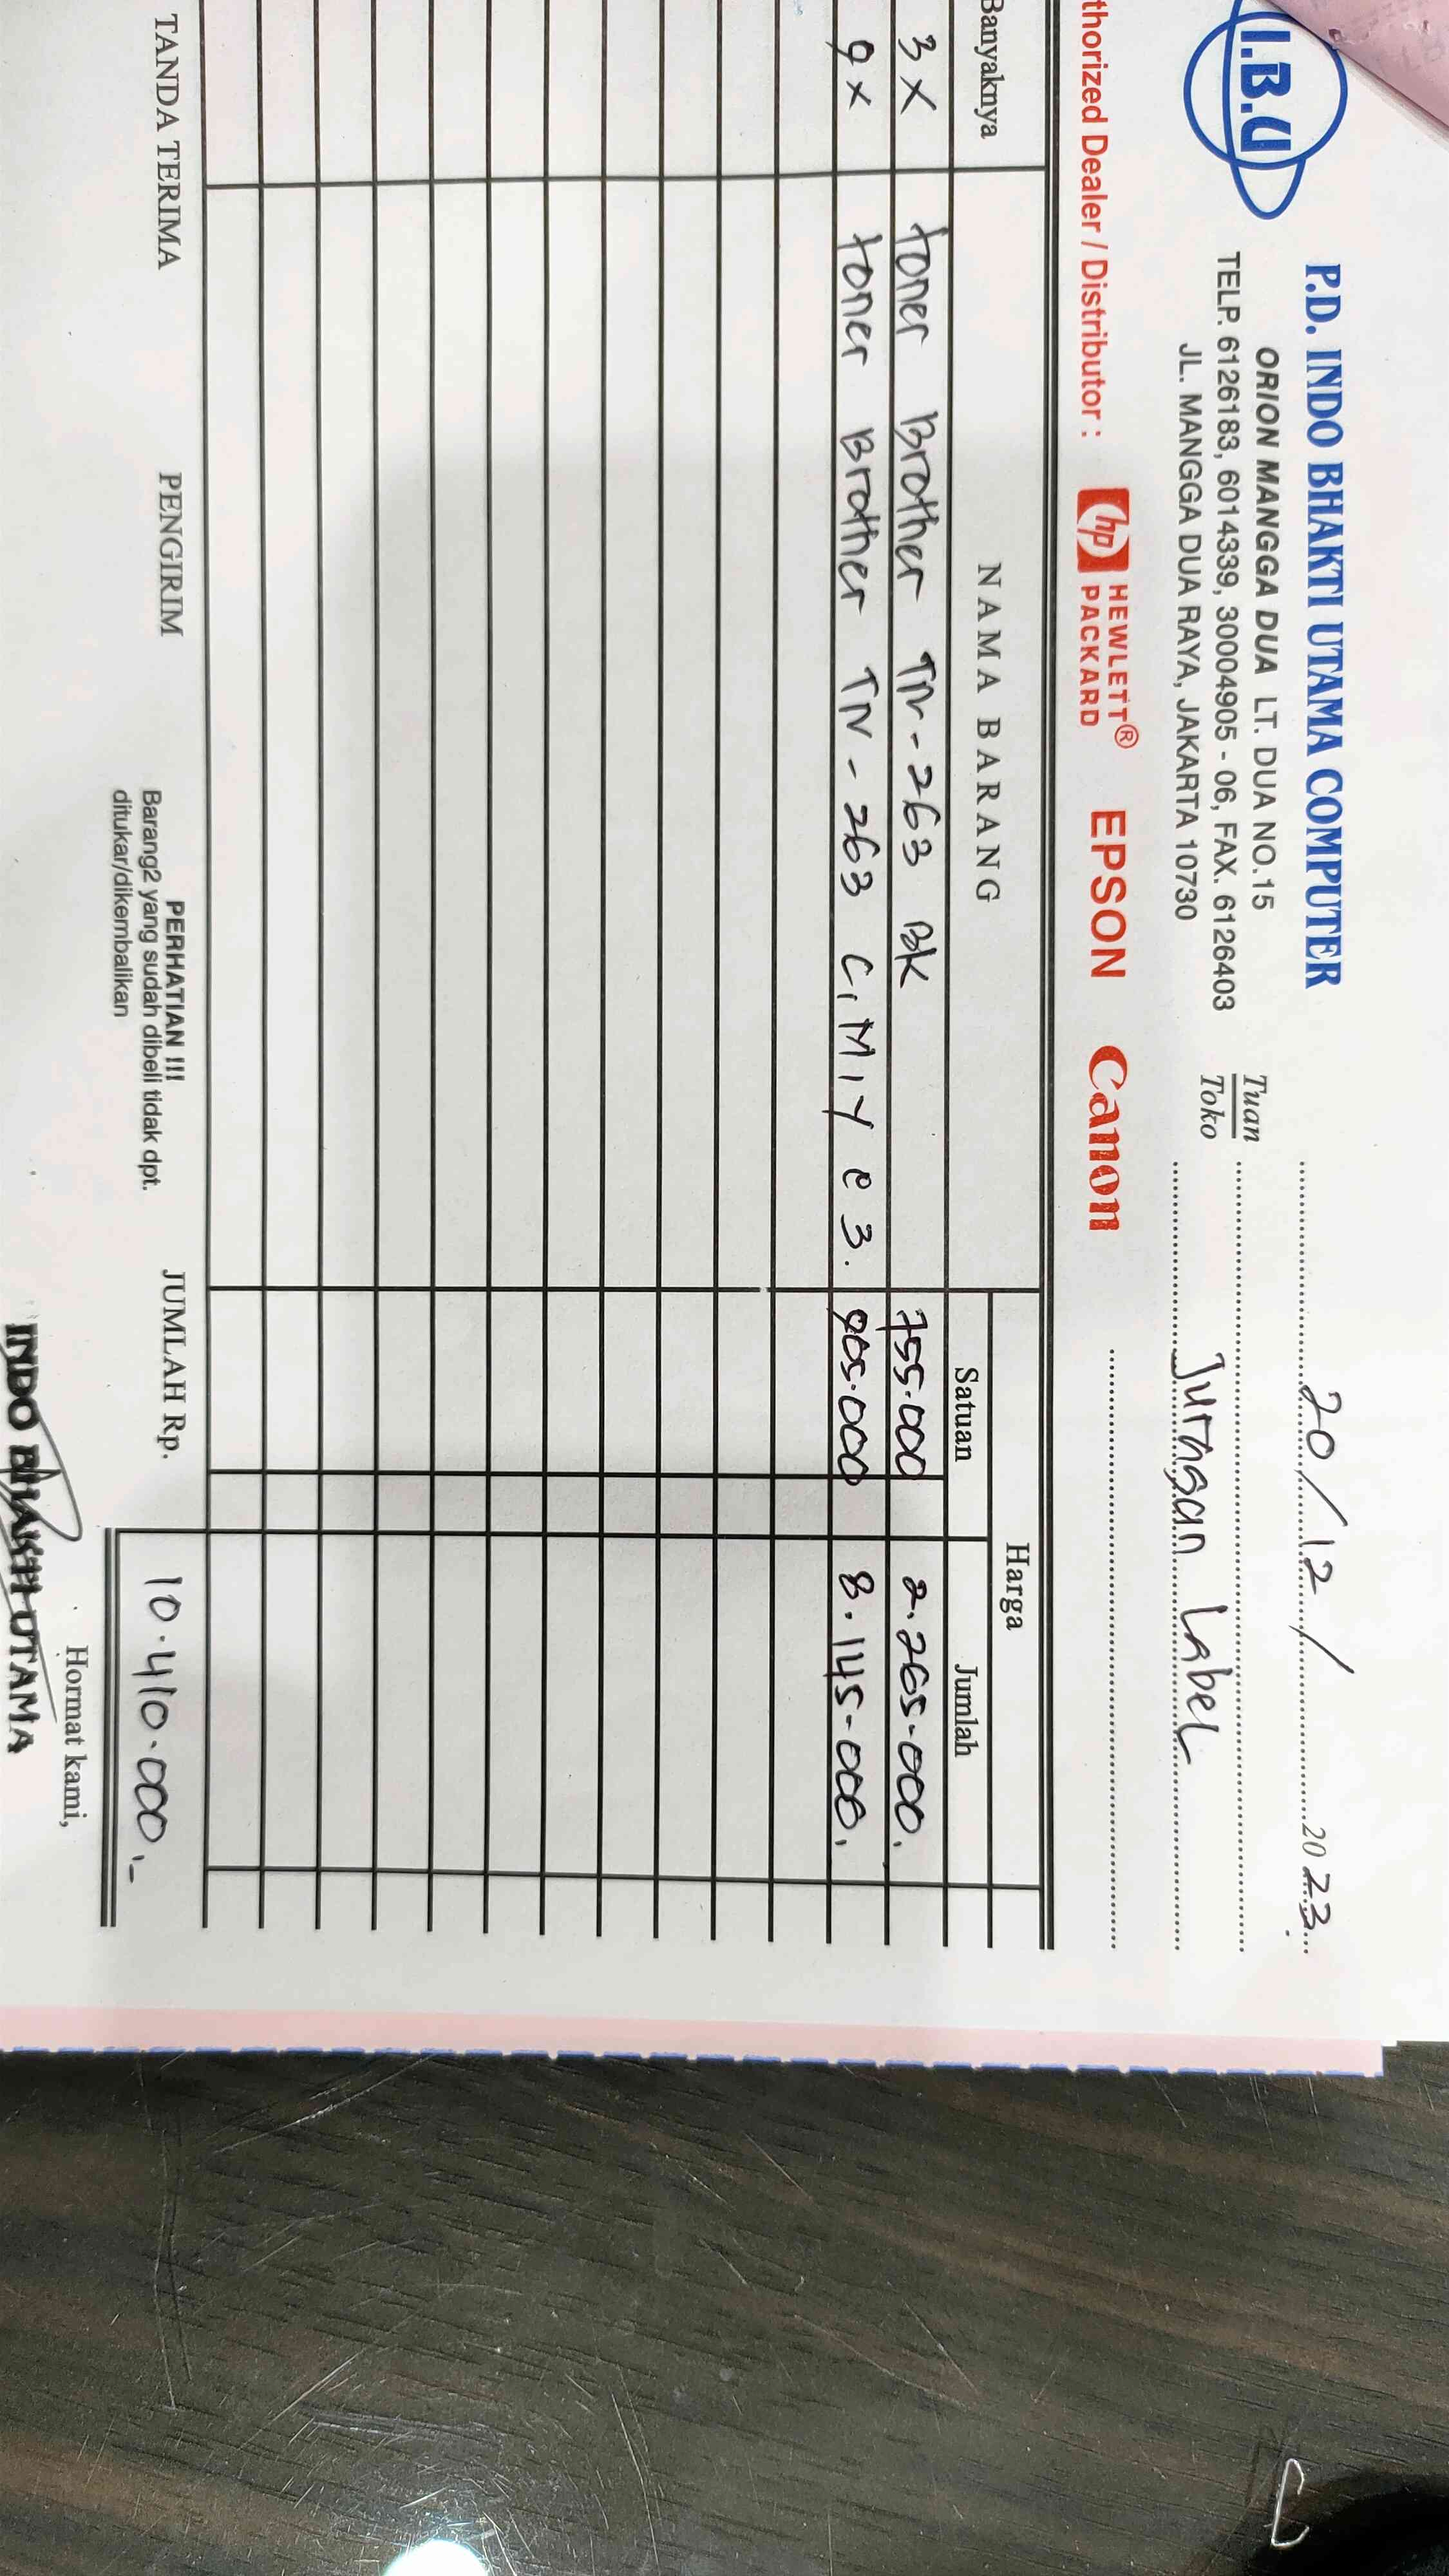 I.B.U
P.D. INDO BHAKTI UTAMA COMPUTER
ORION MANGGA DUA LT. DUA NO.15
TELP. 6126183, 6014339, 30004905 - 06, FAX. 6126403
JL. MANGGA DUA RAYA, JAKARTA 10730
20/12/ 2023
Tuan
Toko
Juragan Label
thorized Dealer / Distributor : hp HEWLETT® PACKARD EPSON Canon
Banyaknya NAMA BARANG Harga
Satuan Jumlah
3 X toner Brother TN-263 BK 755.000 2.265.000.
9 X toner Brother TN-263 C,M,Y @ 3. 905.000 8.145.000.
TANDA TERIMA PENGIRIM PERHATIAN !!! JUMLAH Rp. 10.410.000.-
Barang2 yang sudah dibeli tidak dpt.
ditukar/dikembalikan
Hormat kami,
INDO BHAKTI UTAMA